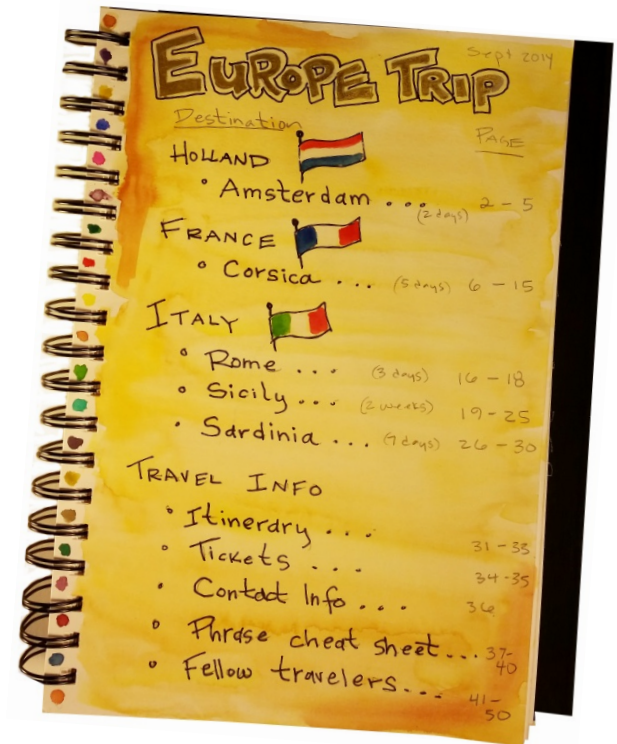 Sept 2014
EUROPE TRIP
Destination PAGE
HOLLAND
• Amsterdam ... (2 days) 2 - 5
FRANCE
• Corsica ... (5 days) 6 - 15
ITALY
• Rome ... (3 days) 16 - 18
• Sicily ... (2 weeks) 19 - 25
• Sardinia ... days) 26 - 30
TRAVEL INFO
• Itinerary ... 31 - 33
• Tickets ... 34 - 35
• Contact Info ... 36
• Phrase cheat sheet ... 37-
40
• Fellow travelers ... 41 -
50